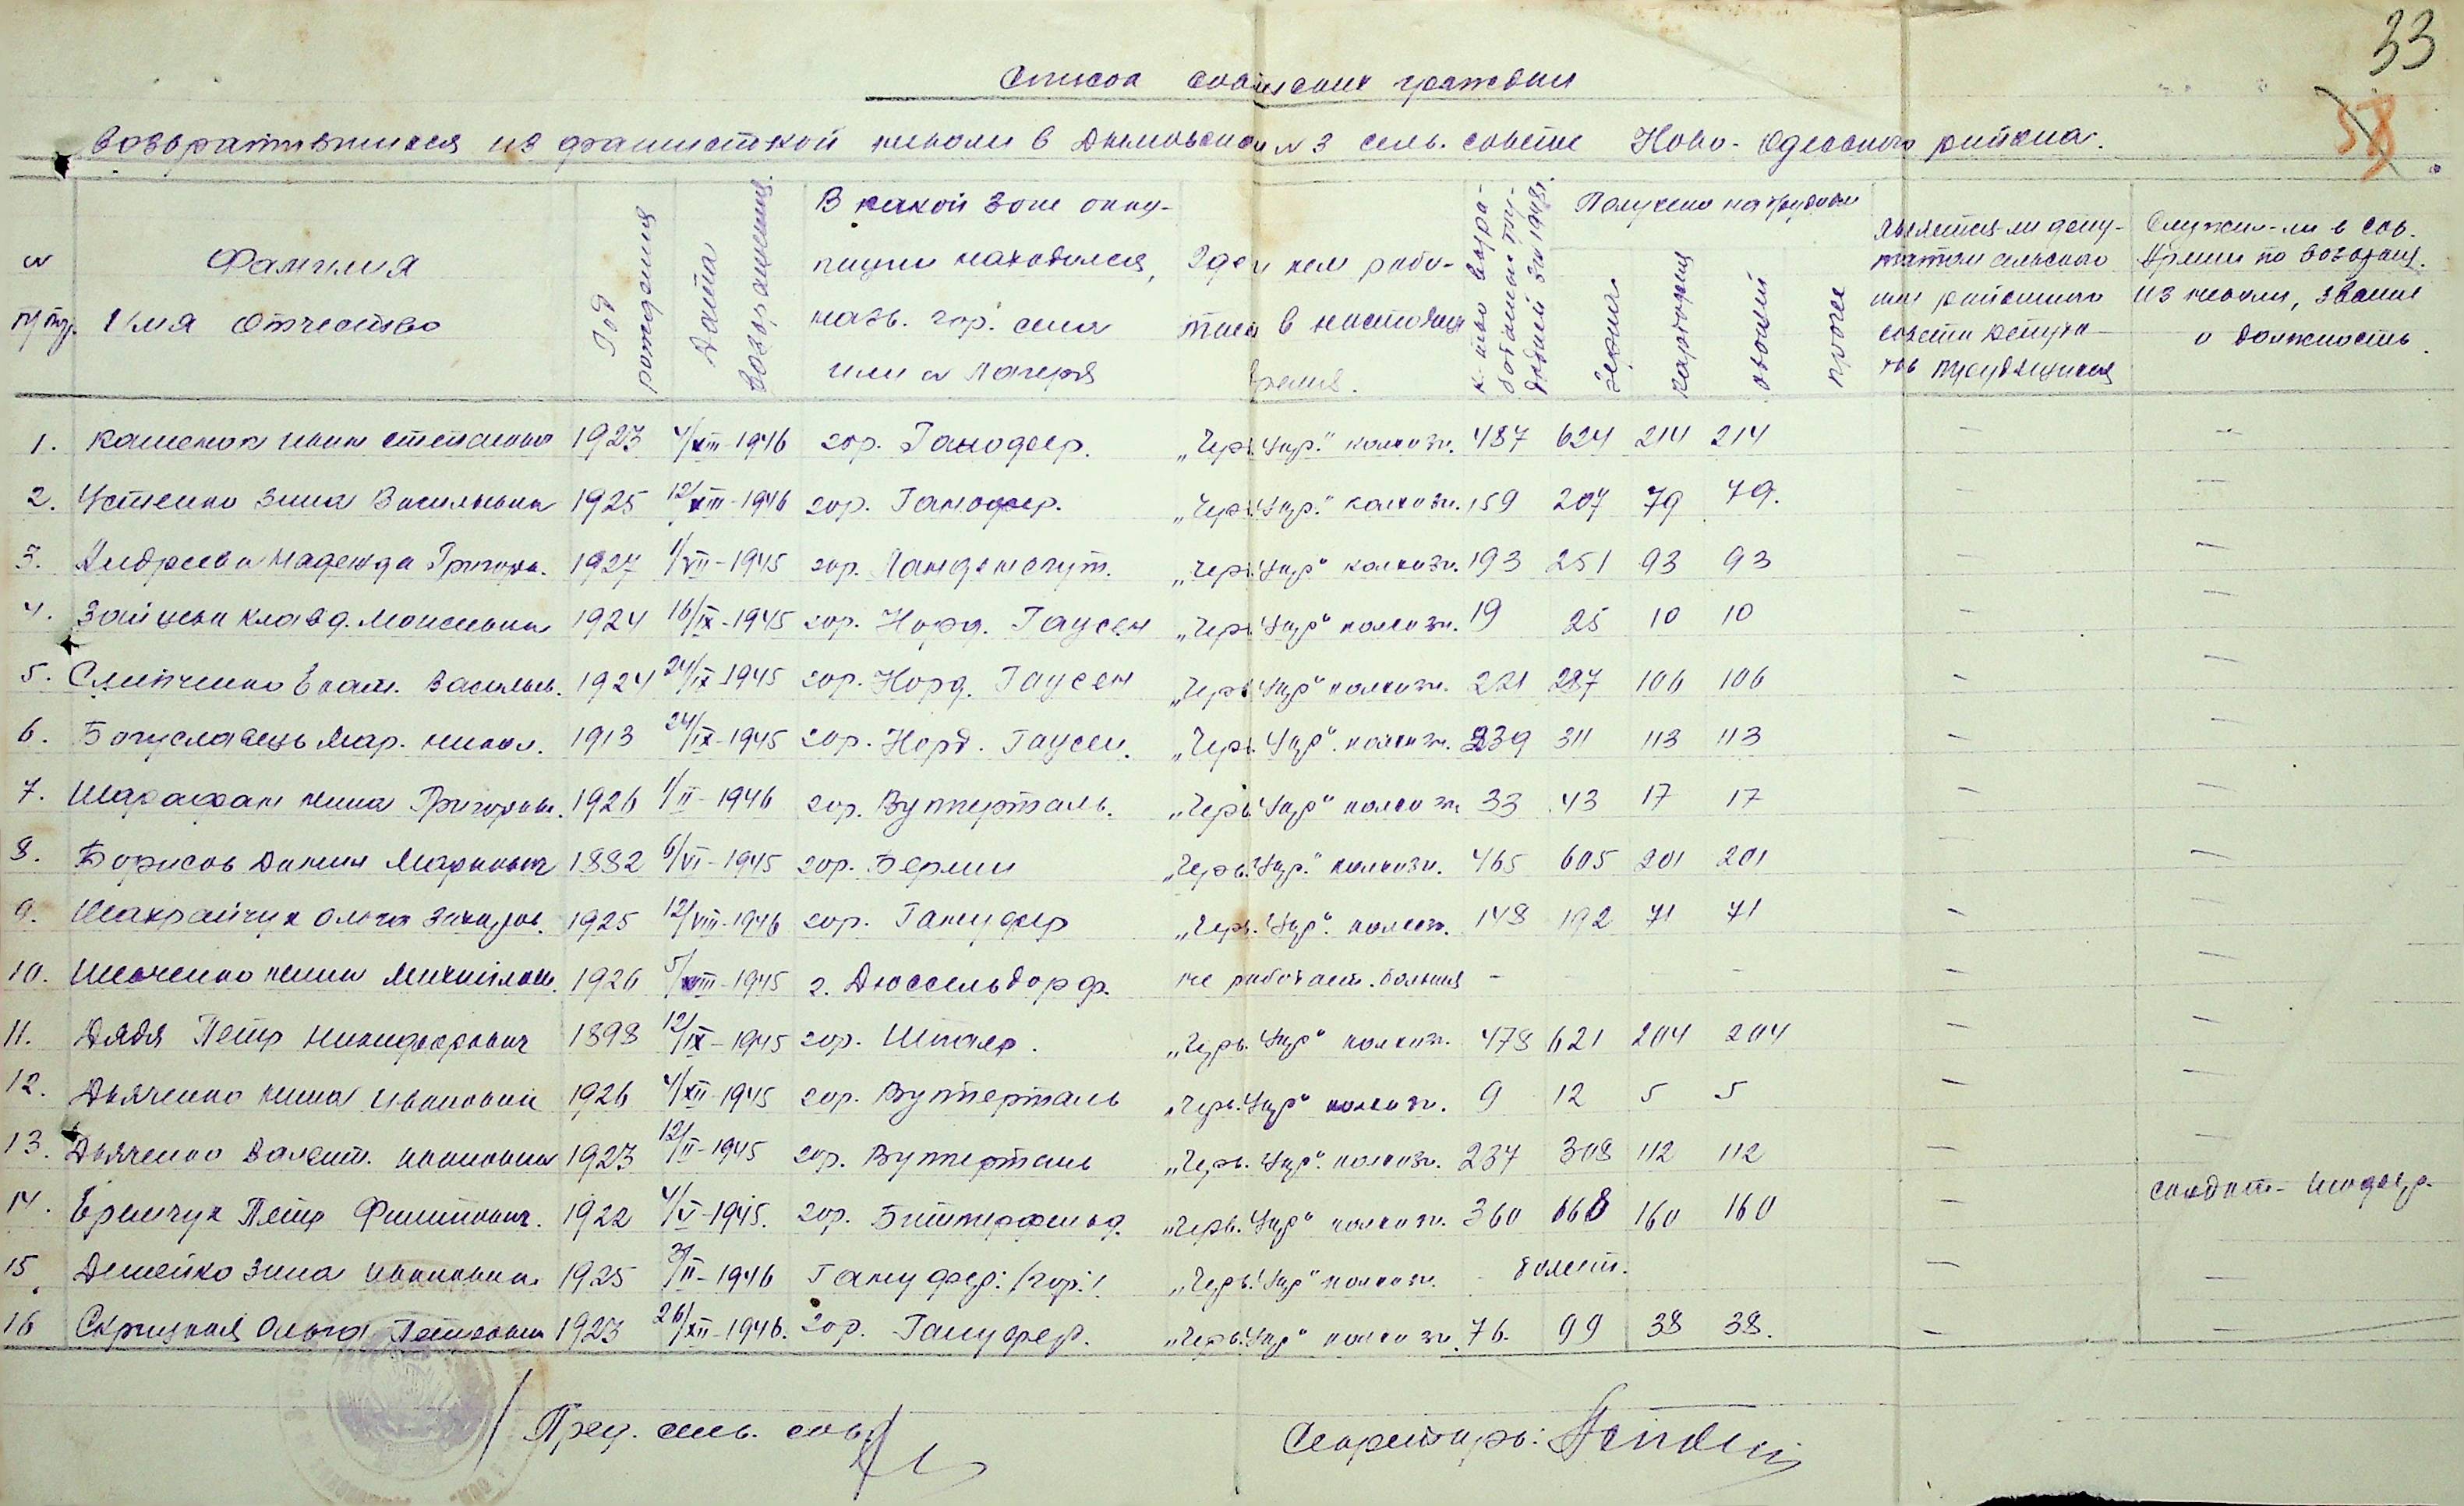 33
58
Список советских граждан
возвратившихся из фашисткой неволи в Дымовском № 3 сель. совете Ново-Одесского района.
№ п/пор.
Фамилия Имя Отчество
Год рождения
Дата возвращения
В какой зоне окку-
пации находился,
назв. гор. села
или № лагеря
Где и кем рабо-
тает в настоящ
время.
К-тво вырабо-
ботанных тру-
додней за 1948г.
Получено на трудодни
зерна
картофеля
овощей
прочее
Является-ли депу-
татом сельского
или районного
совета депута-
тов трудящихся
Служил-ли в Сов.
Армии по возвращ.
из неволи, звание
и должность.
1. Иван Степанович 1923 4/XII-1946 гор. Ганофер. „Черв. Укр." колхозн. 487 624 214 214 — —
2. Устенко Зина Васильевна 1925 12/XIII-1946 гор. Ганофер. „Черв. Укр." колхозн. 159 207 79 79. — —
3. Андреева Надежда Григорьв. 1927 1/VII-1945 гор. „Черв. Укр" колхозн. 193 251 93 93 — —
4. Клавд. Моисеевна 1924 16/IX-1945 гор. Норд. Гаусен „Черв. Укр" колхозн. 19 25 10 10 — —
5. Слипченко Екат. Васильев. 1924 24/IX-1945 гор. Норд. Гаусен „Черв. Укр" колхозн. 221 287 106 106 — —
6. Богуславець Мар. Никол. 1913 24/IX-1945 гор. Норд. Гаусен. „Черв. Укр". колхозн. 239 311 113 113 — —
7. Шарафан Нина Григорьев. 1926 1/II-1946 гор. Вупперталь. „Черв. Укр" колхозн 33 43 17 17 — —
8. Борисов Данил Маркович 1882 6/VI-1945 гор. Берлин „Черв. Укр." колхозн. 465 605 201 201 — —
9. Шакрайчук Ольга Захаров. 1925 12/VIII-1946 гор. Гануфер „Черв. Укр". колхозн. 148 192 71 71 — —
10. Шевченко Нина Михайлов. 1926 5/VIII-1945 г. Дюссельдорф. не работает. больная — — — — —
11. Дядя Петр Никифорович 1898 12/IX-1945 гор. „Черв. Укр" колхозн. 478 621 204 204 — —
12. Дьяченко Нина Ивановна 1926 4/XII-1945 гор. Вупперталь „Черв. Укр" колхозн. 9 12 5 5 — —
13. Дьяченко Валент. Ивановна 1923 12/II-1945 гор. Вупперталь „Черв. Укр". колхозн. 237 308 112 112 — —
14. Еремчук Петр Филипович. 1922 4/V-1945. гор. Биттерфельд. „Черв. Укр" колхозн. 360 668 160 160 — солдат - шофер.
15. Демейко Зина Ивановна. 1925 3/II-1946 Гануфер: /гор./ „Черв. Укр" колхозн. болеет. — —
16 Скрицкая Ольга Петровна 1923 26/XII-1946. гор. Гануфер. „Черв. Укр" колхозн. 76. 99 38 38. — —
/ Пред. сель. сов. /
Секретарь: